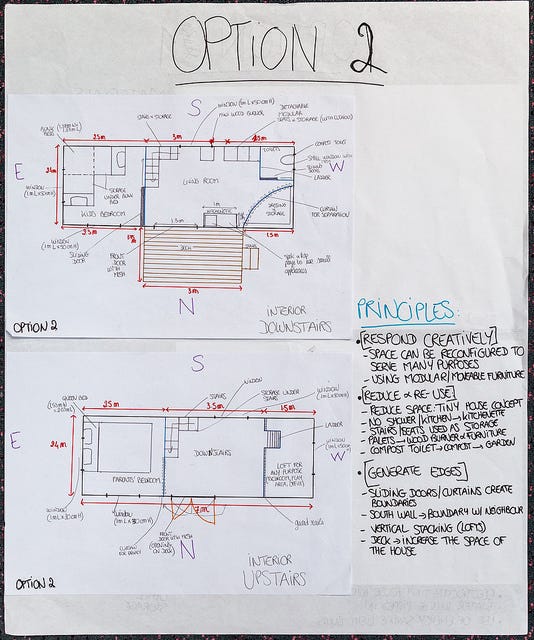 OPTION 2
S
WINDOW (1m L x 50cm H)
MINI WOOD BURNER
DETACHABLE
MODULAR
SEATS + STORAGE
STAIRS + STORAGE
COMPOST TOILET
BUNK
BEDS
2.5m
3m
1.5m
E
W
2.4m
TOILETS
SMALL WINDOW
SLIDING
DOOR
LADDER
WINDOW
(1m L x 50cm H)
STORAGE
UNDER BUNK
BED
LIVING ROOM
DRESSING
+
STORAGE
CURTAIN
FOR SEPARATION
KIDS BEDROOM
1.5m
1m
KITCHENETTE
2.5m
1.5m
WINDOW
(1m L x 50cm H)
SLIDING
DOOR
FRONT
DOOR
WITH MESH
DECK
3m
N
INTERIOR
DOWNSTAIRS
OPTION 2
S
WINDOW
STAIRS
STORAGE UNDER
STAIRS
WINDOW
QUEEN BED
2.5m
3.5m
1.5m
LADDER
E
W
2.4m
DOWNSTAIRS
PARENTS' BEDROOM
LOFT FOR
ANY PURPOSE
WINDOW
7m
WINDOW
guard rails
CURTAIN
FOR PRIVACY
FRONT
DOOR WITH MESH
(OPENING
ON DECK)
N
INTERIOR
UPSTAIRS
OPTION 2
PRINCIPLES:
• [RESPOND CREATIVELY]
- SPACE CAN BE RECONFIGURED TO
SERVE MANY PURPOSES
- USING MODULAR/MOVEABLE FURNITURE
• [REDUCE & RE-USE]
- REDUCE SPACE: TINY HOUSE CONCEPT
- NO SHOWER/KITCHEN → KITCHENETTE
- STAIRS/SEATS USED AS STORAGE
- PALETS → WOOD BURNER & FURNITURE
- COMPOST TOILET → COMPOST → GARDEN
• [GENERATE EDGES]
- SLIDING DOORS/CURTAINS CREATE
BOUNDARIES
- SOUTH WALL → BOUNDARY W/ NEIGHBOUR
- VERTICAL STACKING (LOFTS)
- DECK → INCREASE THE SPACE OF
THE HOUSE